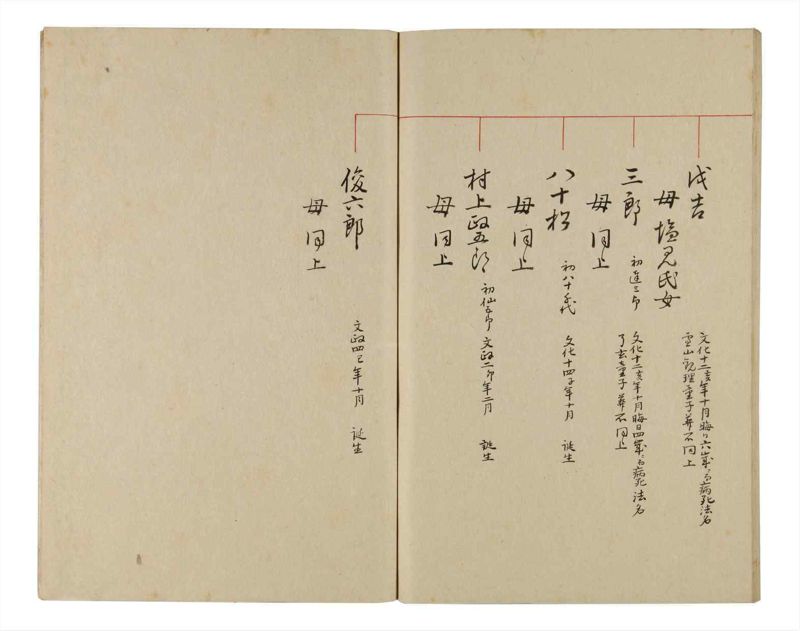 戌吉
母 塩見氏女
文化十二亥年十月晦日六歳ニ而病死法名
雪山観理童子葬所同上
三郎
初蓮三郎
母 同上
文化十二亥年十月晦日四歳ニ而病死法名
了玄童子葬所同上
八十松
初八十千代
文化十四子年十月 誕生
母 同上
村上政五郎
初仙五郎 文政二卯年二月 誕生
母 同上
俊六郎
母 同上
文政四巳年十月 誕生